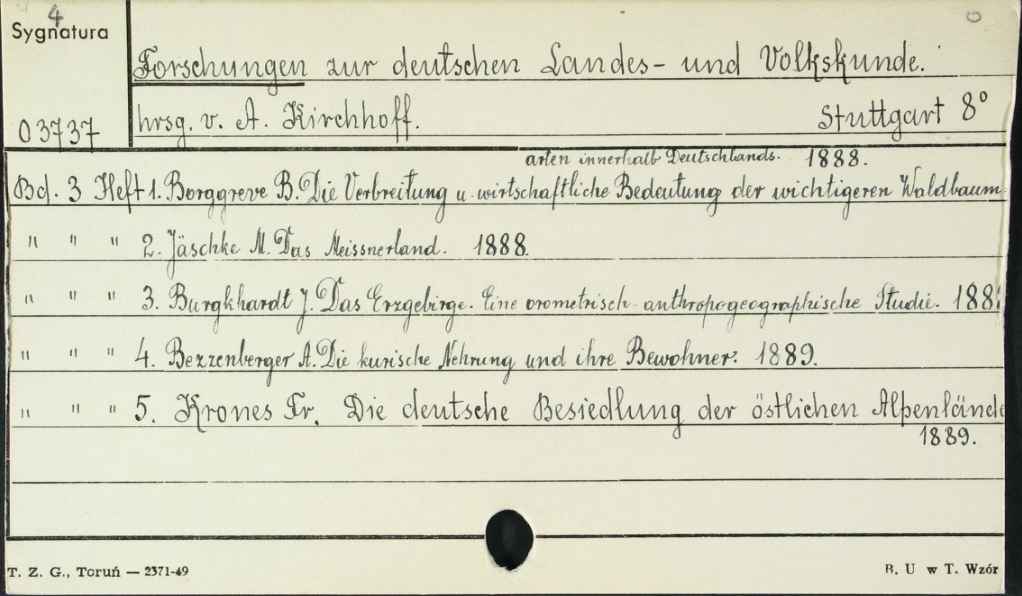 4
Sygnatura
Forschungen zur deutschen Landes- und Volkskunde.
hrsg. v. A. Kirchhoff. Stuttgart 8°
03737
arten innerhalb Deutschlands. 1888.
Bd. 3 Heft 1. Borggreve B. Die Verbreitung u. wirtschaftliche Bedeutung der wichtigeren Waldbaum-
" " " 2. Jäschke M. Das Meissnerland. 1888.
" " " 3. Burgkhardt J. Das Erzgebirge. Eine orometrisch-anthropogeographische Studie. 188
" " " 4. Bezzenberger A. Die kurische Nehrung und ihre Bewohner. 1889.
" " " 5. Krones Fr. Die deutsche Besiedlung der östlichen Alpenlände
1889.
T. Z. G., Toruń — 2371-49 B. U w T. Wzór